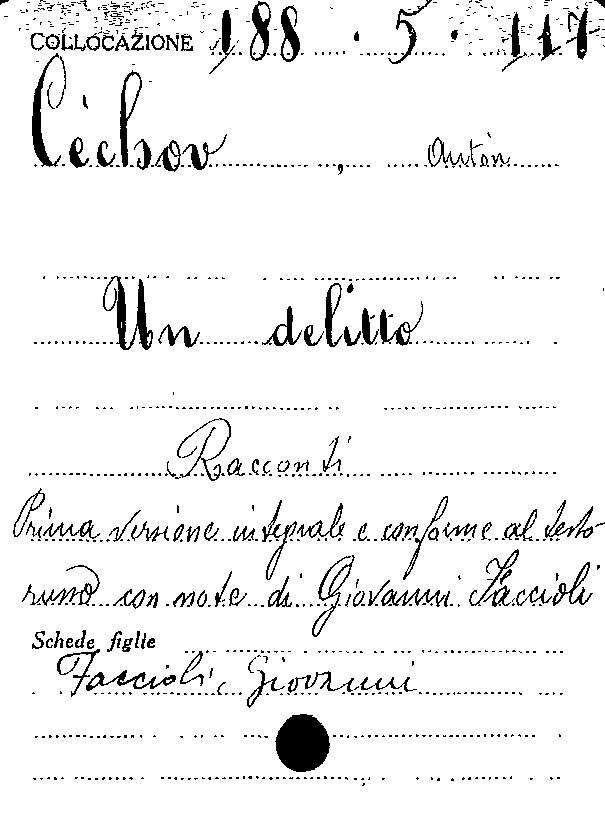 COLLOCAZIONE 188 . 5 . 117
Cèchov , Antòn
Un delitto
Racconti
Prima versione integrale e conforme al testo
russo con note di Giovanni Faccioli
Schede figlie
Faccioli, Giovanni